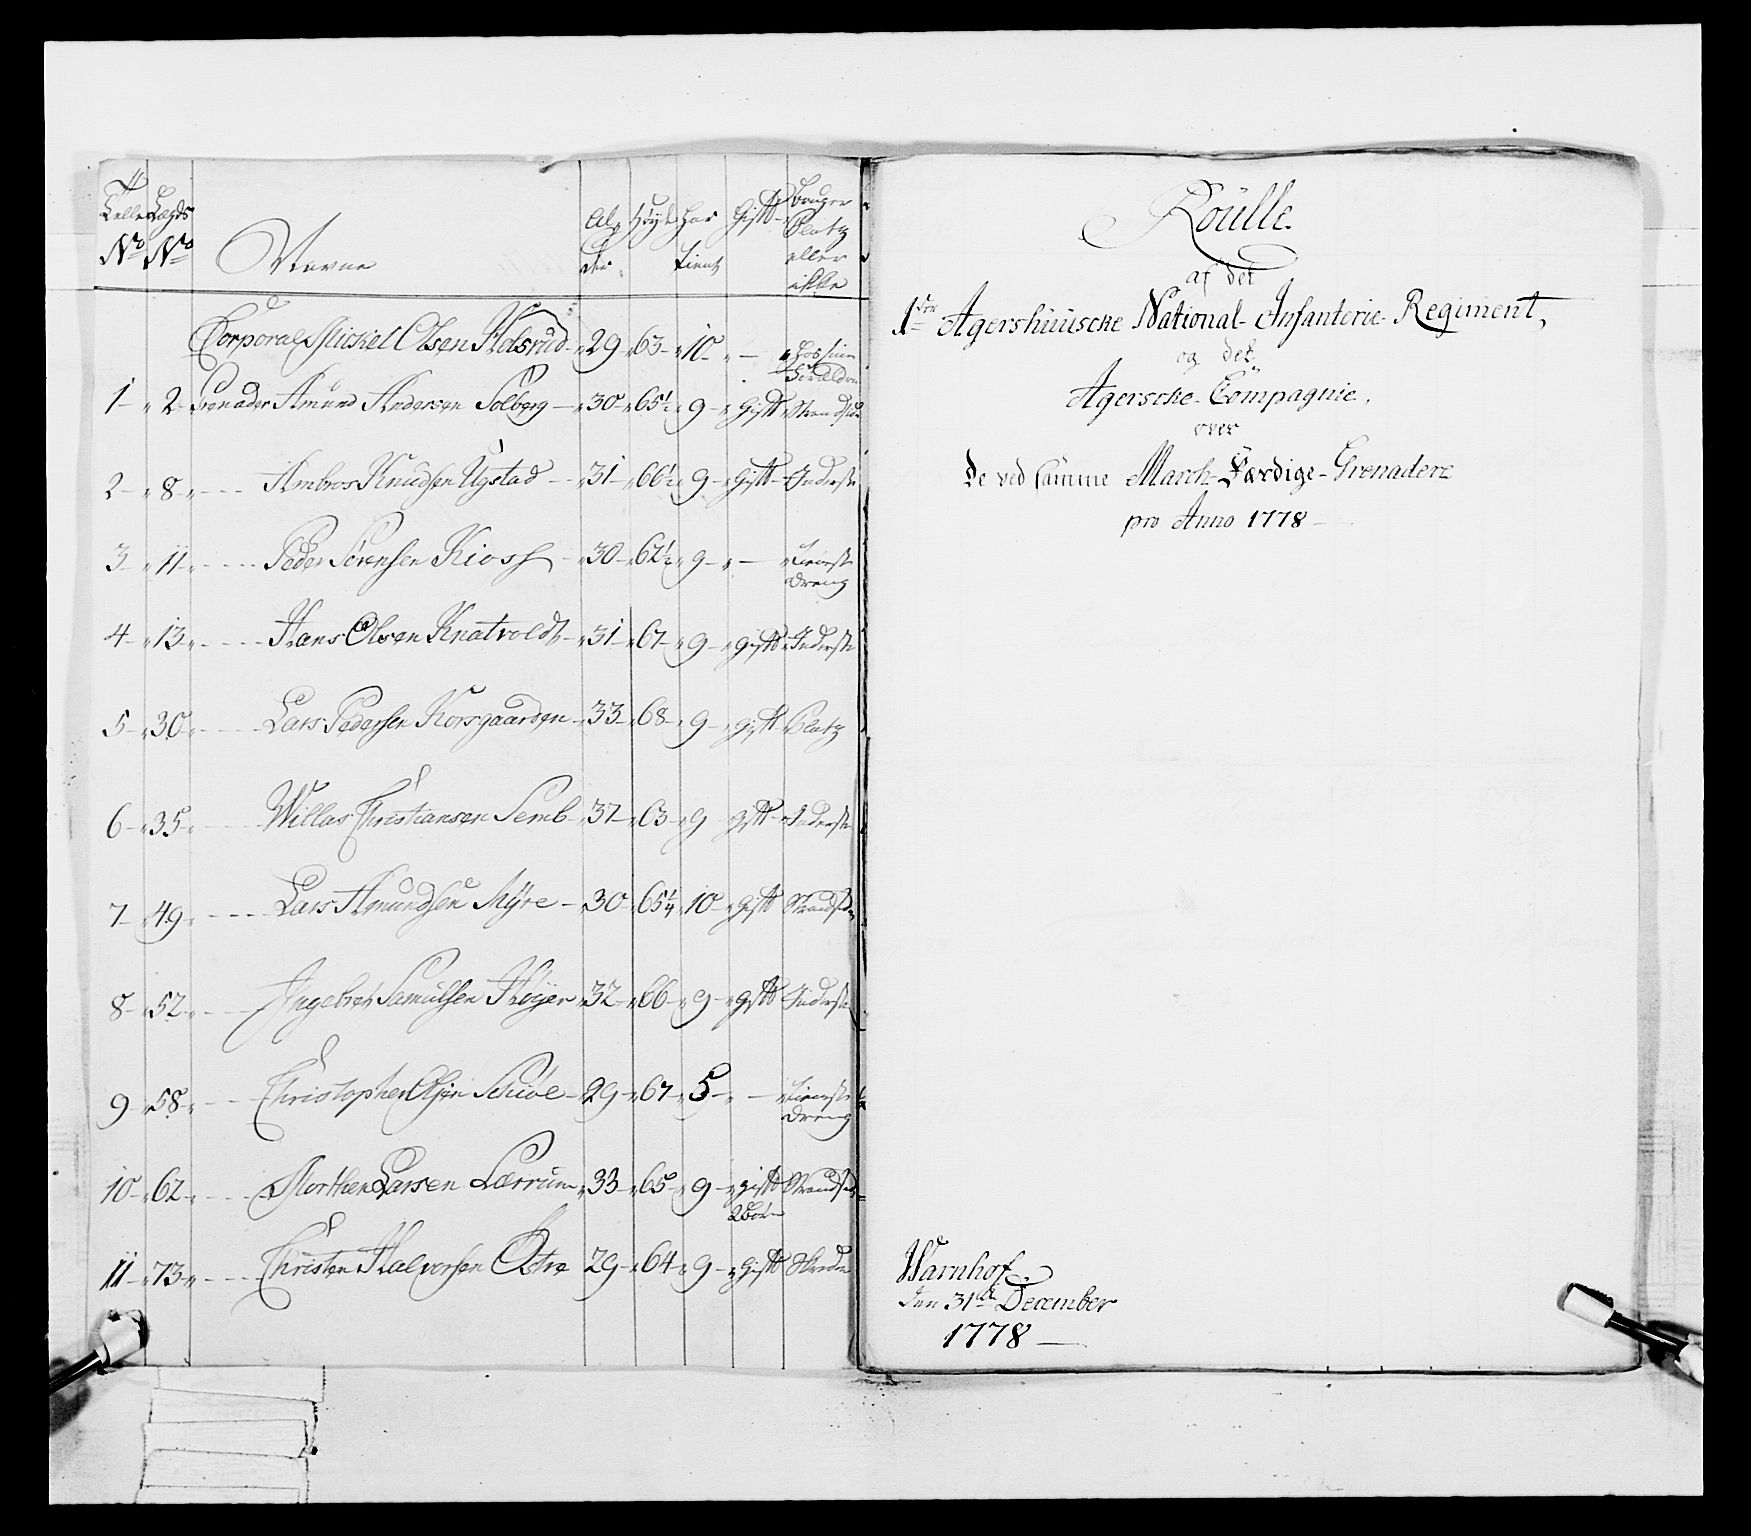 Telle Lægds
No No Navne Al, Høyde har Gift Bruger
der tient Platz
eller
ikke
Corporal Michel Olsen Holsrud 29 63 10 — hos sine
Forældre
1 2 Grenader Amund Andersen Solberg 30 65½ 9 Gift Strandsidder
2 8 Ambros Knudsen Ugstad 31 66½ 9 Gift Inderste
3 11 Peder Sørensen Kioss 30 62½ 9 — Tieneste
dreng
4 13 Hans Olsen Knatvoldt 31 67 9 gift Inderste
5 30 Lars Pedersen Korsgaarden 33 68 9 gift Platz
6 35 Willas Christiansen Semb 37 63 9 gift Inderste
7 49 Lars Amundsen Myre 30 65¼ 10 Gift Strandsidder
8 52 Ingebret Samuelsen Høyer 32 66 9 gift Inderste
9 58 Christopher Olsen Schiøe 29 67 5 — Tieneste
dreng
10 62 Morthen Larsen Lærrum 33 65 9 gift Strandsidder
2 børn
11 73 Christen Halvorsen Østre 29 64 9 Gift
Roulle
af det
1ste Agershuuscke National-Infanterie-Regiment,
og det
Agerscke-Compagnie,
over
De ved samme March-Færdige-Grenadere
pro Anno 1778
Warnhof
den 31te December
1778